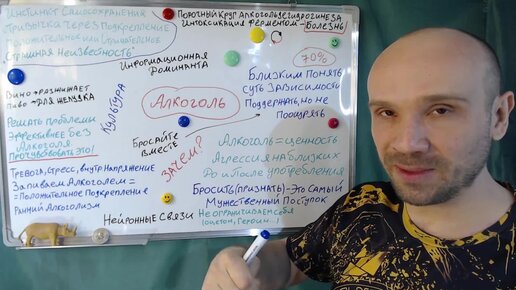 Инстинкт Самосохранения
Привычка через Подкрепление
Положительное или Отрицательное
"Страшная Неизвестность"
Порочный Круг Алкогольдегидрогеназа
Интоксикация ферментом – Болезнь!
70%
Информационная
Доминанта
Близким понять
суть зависимости
Поддержать, но не
поощрять
Вино → разжижает
пиво → для желудка
Культура
Алкоголь
Решать проблемы
Эффективнее без
Алкоголя
Прочувствовать это!
Бросайте
вместе
Зачем?
Алкоголь = ценность
Агрессия на близких
До и После употребления
Тревога, Стресс, внутр напряжение
Запиваем Алкоголем =
= Положительное Подкрепление
Ранний Алкоголизм
Бросить (признать) – Это Самый
Мужественный Поступок
Нейронные Связи
Не ограничиваем себя